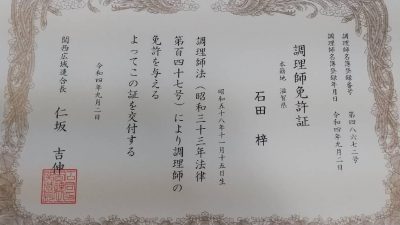 調理師名簿登録番号 第四八六七二号
調理師名簿登録年月日 令和四年九月二日
調理師免許証
本籍地 滋賀県
石田 梓
昭和五十八年十一月十五日生
調理師法(昭和三十三年法律
第百四十七号)により調理師の
免許を与える
よってこの証を交付する
令和四年九月二日
関西広域連合長 仁坂 吉伸